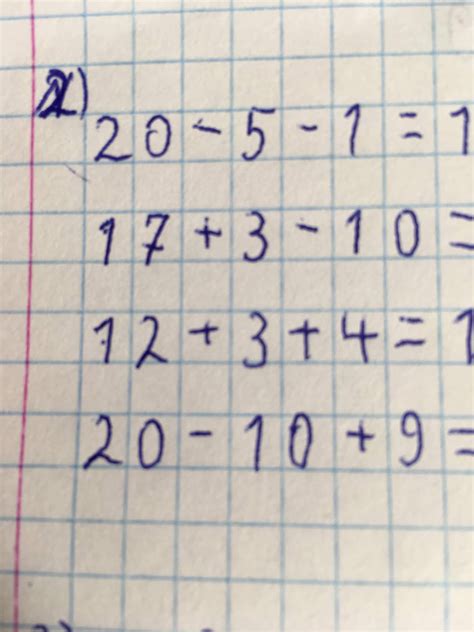 20 - 5 - 1 = 1
17 + 3 - 10 =
12 + 3 + 4 = 1
20 - 10 + 9 =